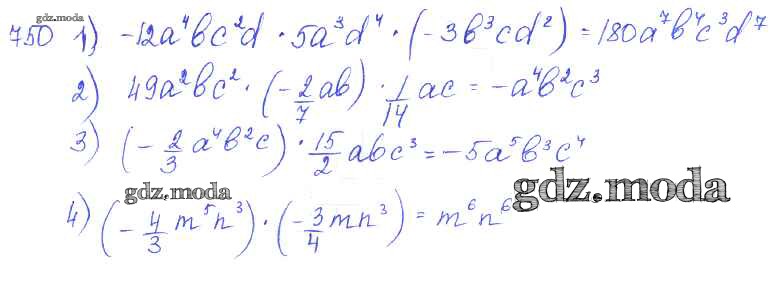 gdz.moda
750 1) -12a⁴bc²d · 5a³d⁴ · (-3b³cd²) = 180a⁷b⁴c³d⁷
2) 49a²bc² · (-2/7 ab) · 1/14 ac = -a⁴b²c³
3) (-2/3 a⁴b²c) · 15/2 abc³ = -5a⁵b³c⁴
gdz.moda gdz.moda
4) (-4/3 m⁵n³) · (-3/4 mn³) = m⁶n⁶